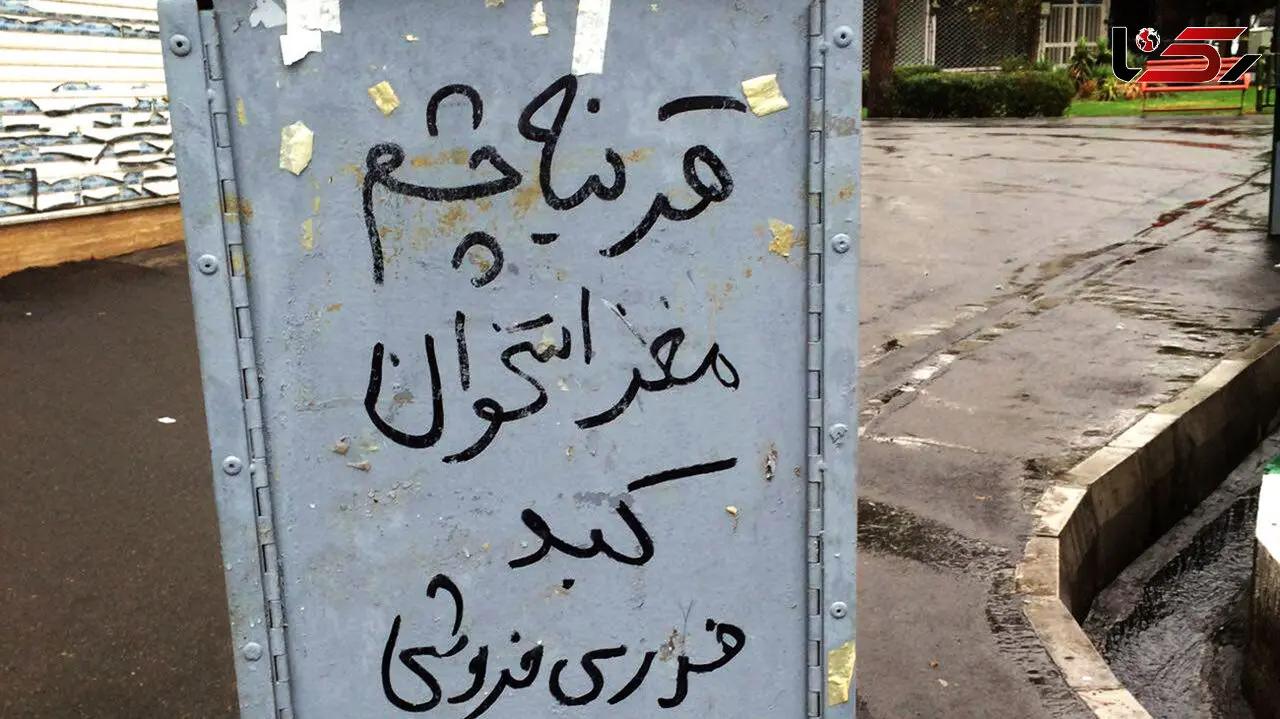 رکنا
قرنیه چشم
مغز استخوان
کبد
فوری فروشی